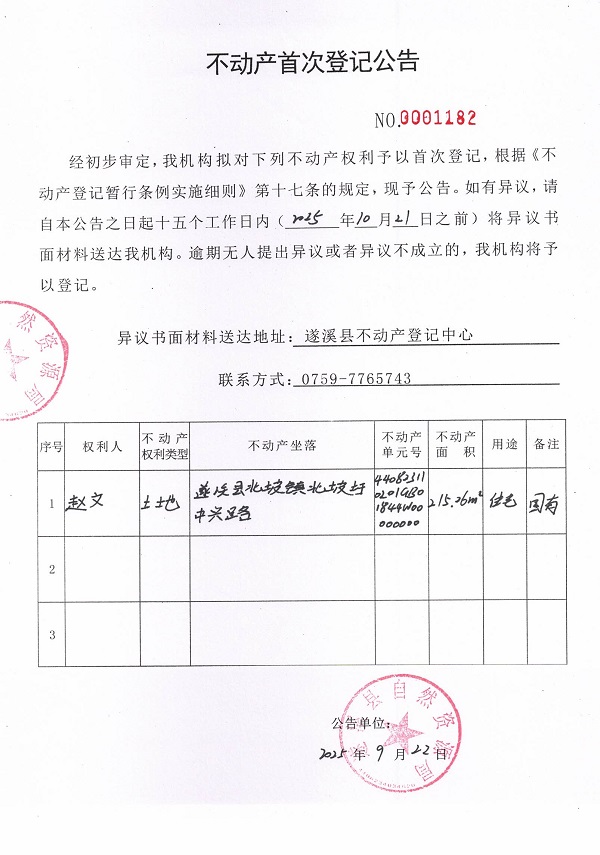 不动产首次登记公告
NO.0001182
经初步审定，我机构拟对下列不动产权利予以首次登记，根据《不
动产登记暂行条例实施细则》第十七条的规定，现予公告。如有异议，请
自本公告之日起十五个工作日内（2025 年10月21日之前）将异议书
面材料送达我机构。逾期无人提出异议或者异议不成立的，我机构将予
以登记。
然资源局
异议书面材料送达地址：遂溪县不动产登记中心
联系方式：0759-7765743
序号 权利人 不动产权利类型 不动产坐落 不动产单元号 不动产面积 用途 备注
1 赵文 土地 遂溪县北坡镇北坡圩中兴路 440823110201GB01844W00000000 215.26m² 住宅 国有
2
3
公告单位：
遂溪县自然资源局
2025年9月22日